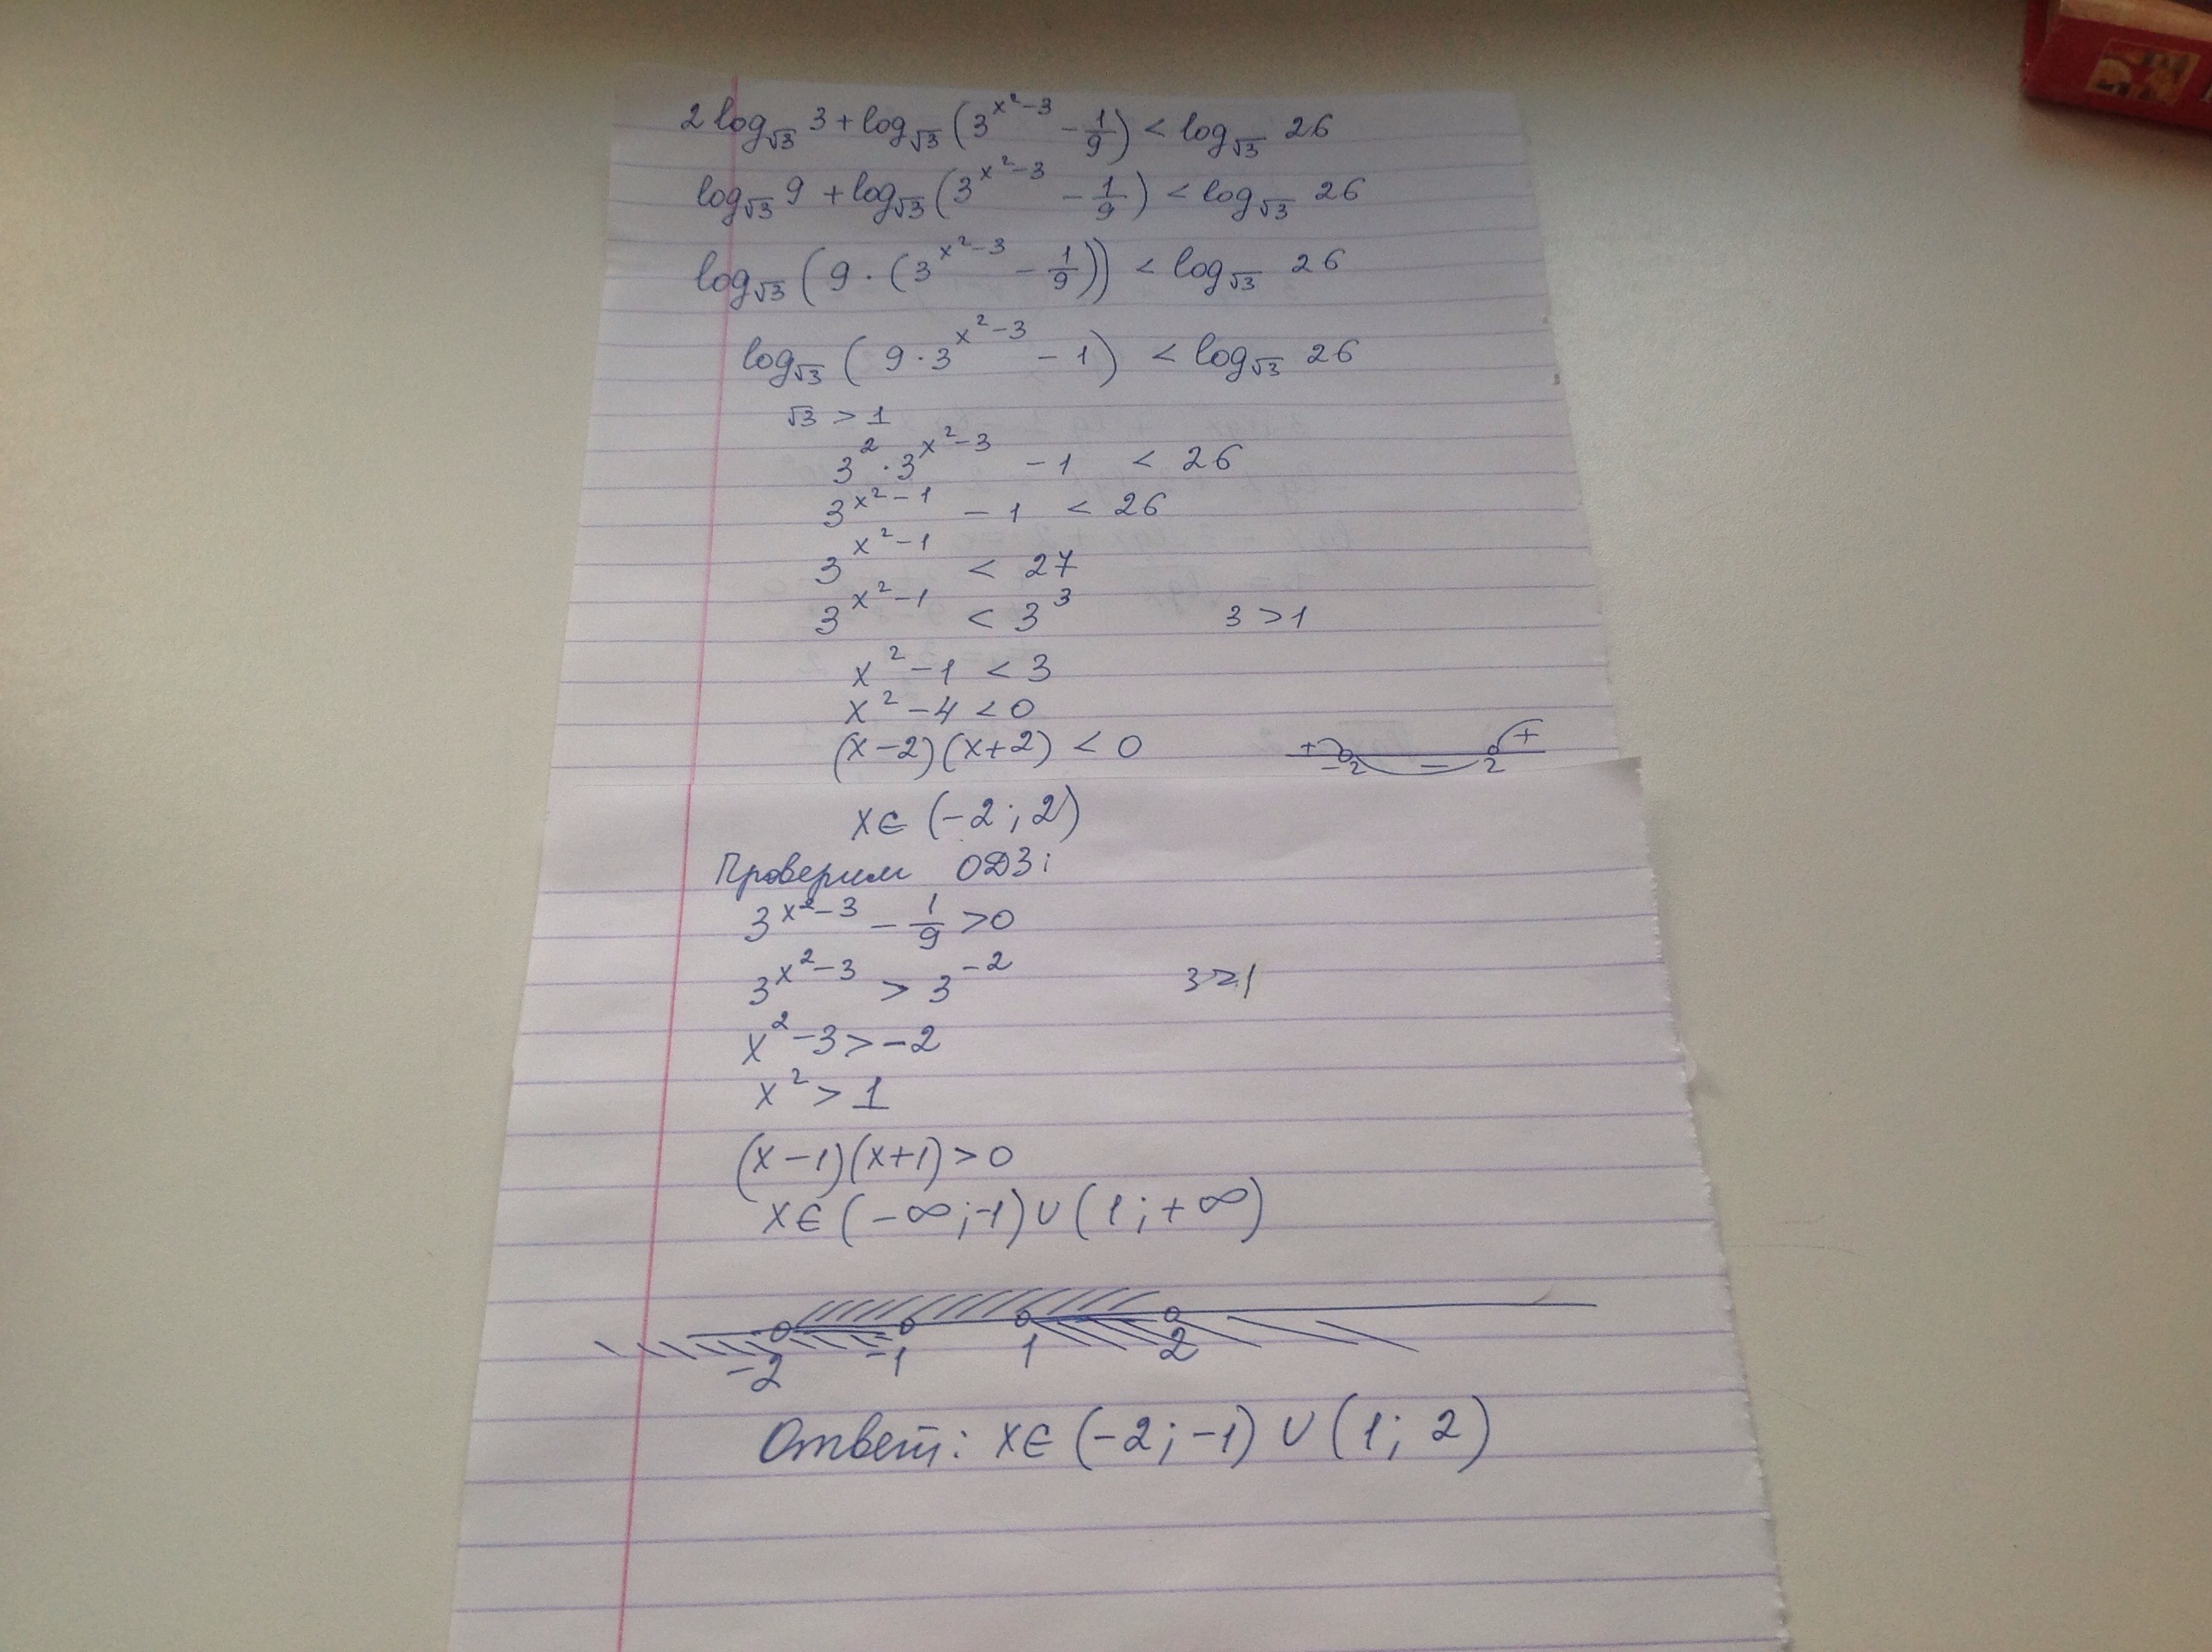 2 log_√3 3 + log_√3 (3^(x²-3) - 1/9) < log_√3 26
log_√3 9 + log_√3 (3^(x²-3) - 1/9) < log_√3 26
log_√3 (9 · (3^(x²-3) - 1/9)) < log_√3 26
log_√3 (9 · 3^(x²-3) - 1) < log_√3 26
√3 > 1
3² · 3^(x²-3) - 1 < 26
3^(x²-1) - 1 < 26
3^(x²-1) < 27
3^(x²-1) < 3³ 3 > 1
x² - 1 < 3
x² - 4 < 0
(x-2)(x+2) < 0 + -2 - 2 +
x ∈ (-2; 2)
Проверим ОДЗ:
3^(x²-3) - 1/9 > 0
3^(x²-3) > 3^(-2) 3 > 1
x² - 3 > -2
x² > 1
(x-1)(x+1) > 0
x ∈ (-∞; -1) ∪ (1; +∞)
-2 -1 1 2
Ответ: x ∈ (-2; -1) ∪ (1; 2)